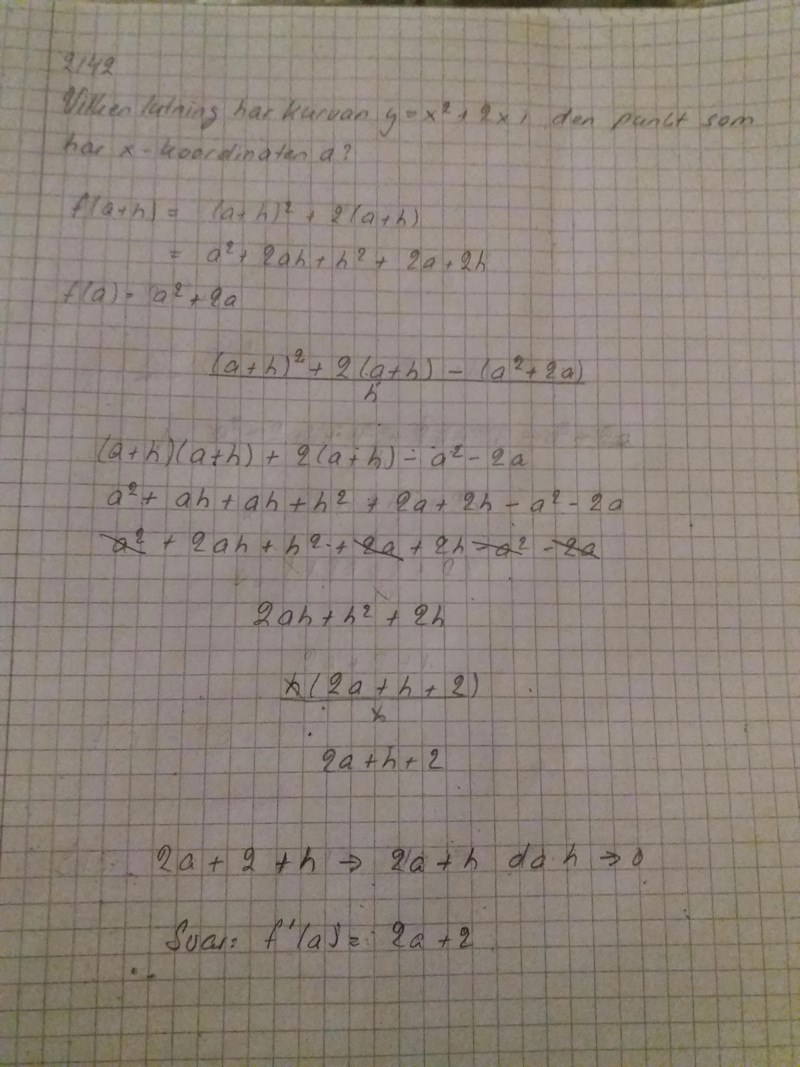 2142
Vilken lutning har kurvan y = x² + 2x i den punkt som
har x-koordinaten a?
f(a+h) = (a+h)² + 2(a+h)
= a² + 2ah + h² + 2a + 2h
f(a) = a² + 2a
(a+h)² + 2(a+h) - (a² + 2a)
h
(a+h)(a+h) + 2(a+h) - a² - 2a
a² + ah + ah + h² + 2a + 2h - a² - 2a
a² + 2ah + h² + 2a + 2h - a² - 2a
2ah + h² + 2h
h(2a + h + 2)
h
2a + h + 2
2a + 2 + h → 2a + h då h → 0
Svar: f'(a) = 2a + 2